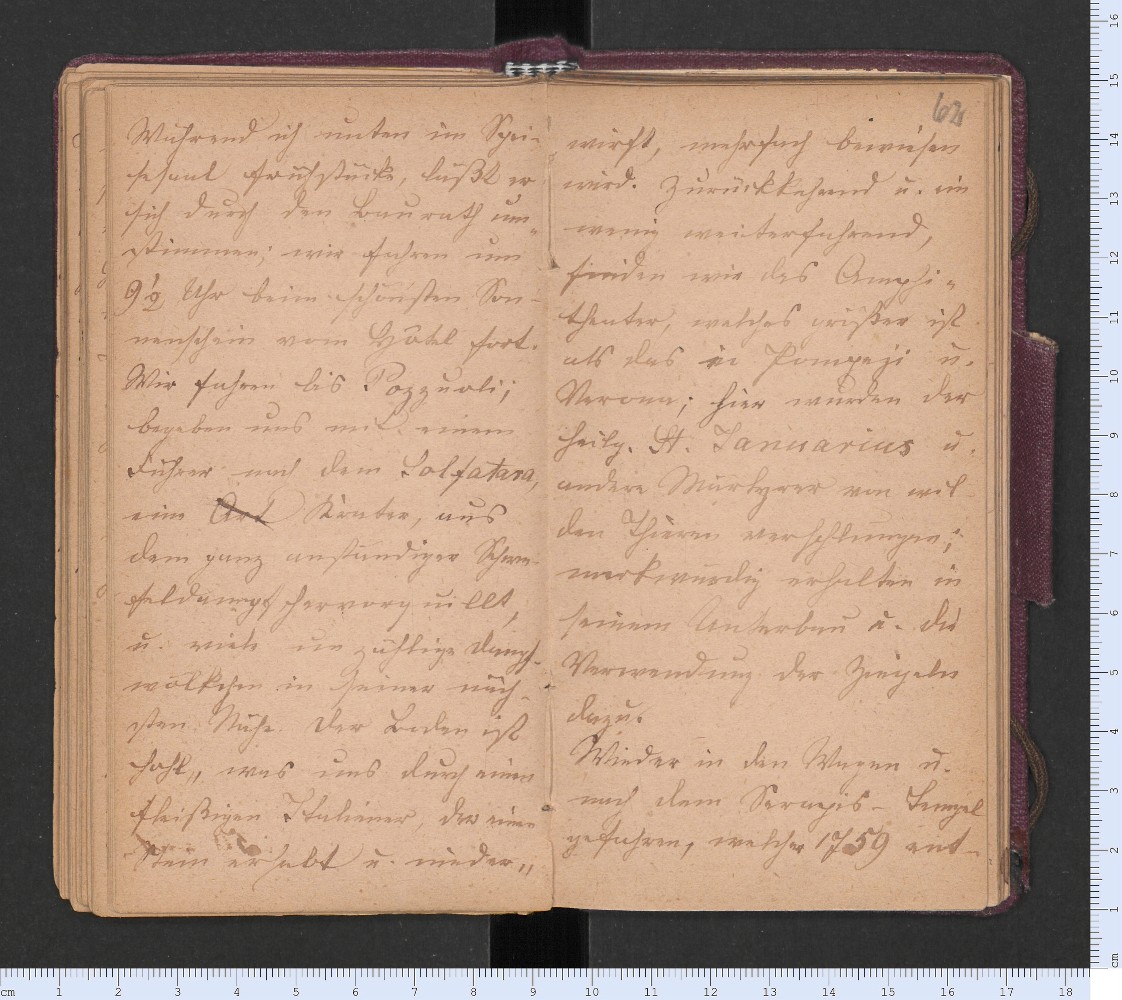 Während ich unten im Spei-
sesaal frühstücke, läßt er
sich durch den Baurath um-
stimmen; wir fahren um
9 1/2 Uhr beim schönsten Son-
nenschein vom Hôtel fort.
Wir fahren bis Pozzuoli;
begeben uns mit einem
Führer nach dem Solfatara,
eine Art Krater, aus
dem ganz anständiger Schwe-
feldampf hervorquillt,
u. viele unzählige Dampf-
wölkchen in seiner näch-
sten Nähe. Der Boden ist
hohl, was uns durch einen
fleißigen Italiener, der einen
Stein erhebt u. nieder-
62
wirft, mehrfach bewiesen
wird. Zurückkehrend u. ein
wenig weiterfahrend,
finden wir das Amphi-
theater, welches größer ist
als das in Pompeji u.
Verona; hier wurden der
heilg. St. Januarius u.
andere Märtyrer von wil-
den Thieren verschlungen;
merkwürdig erhalten in
seinem Unterbau u. die
Verwendung der Ziegeln
dazu.
Wieder in den Wagen u.
nach dem Serapis-Tempel
gefahren, welcher 1759 ent-